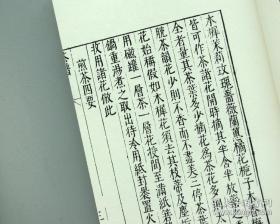 木樨茉莉玫瑰薔薇蘭蕙橘花梔子木
皆可作茶諸花開時摘其半含半放
全者量其茶葉多少摘花為茶花多
脫茶韻花少則不香而不盡美三停茶
花始稱假如木樨花須去其枝蒂及塵
用磁罐一層茶一層花投間至滿紙箬
鍋重湯煮之取出待冷用紙封裹置火
收用諸花倣此
煎茶四要
三